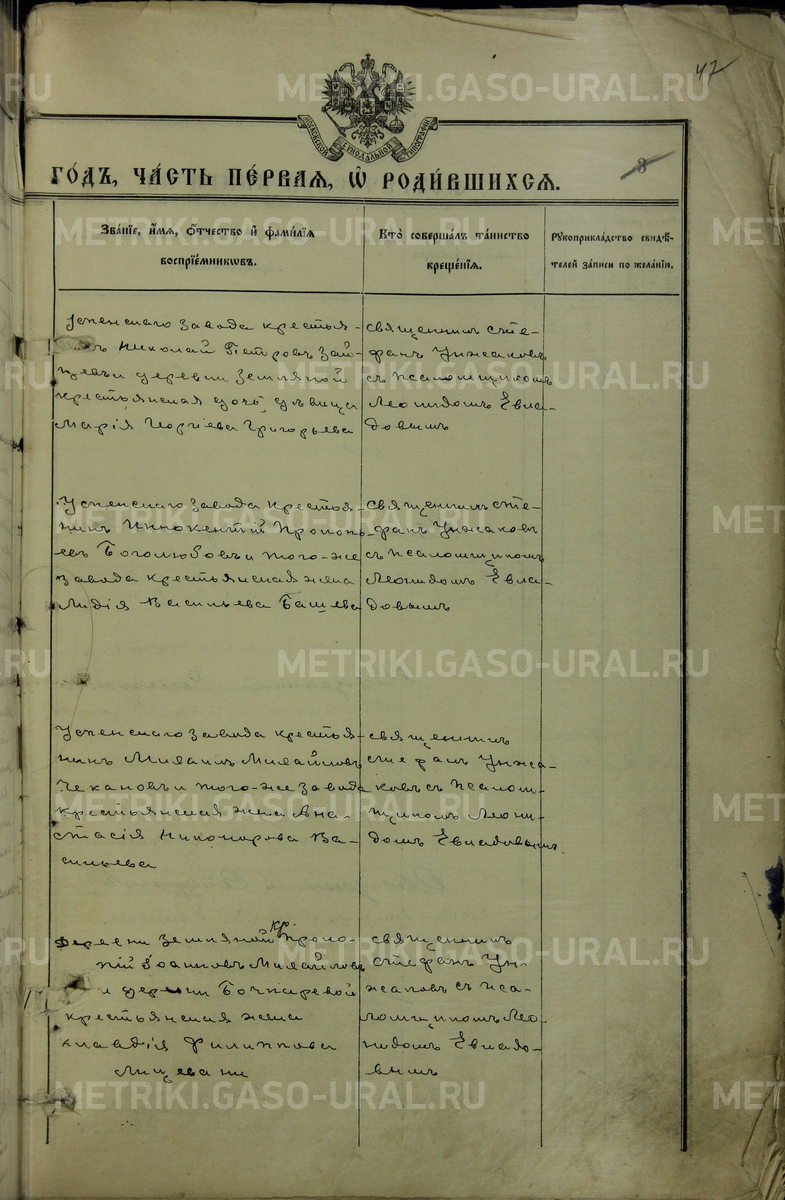 47
МОСКОВСКОЙ СѴНОДАЛЬНОЙ ТИПОГРАФІИ
3
ГО́ДЪ, ЧА́СТЬ ПЕ́РВАѦ, Ѽ РОДИ́ВШИХСѦ.
Зва́нїе, и҆́мѧ, ѻ҆́тчество и҆ фами́лїѧ
воспрїе́мникѡвъ.
Кто̀ соверша́лъ та́инство
креще́нїѧ.
Рꙋкоприкла́дство свидѣ́-
телей за́писи по жела́нїю.
Успенскаго завода крестья-
Николай Петровъ Зай-
цевъ и деревни Земляной
крестьянская дочь девица
Марія Георгіева Григорьева
священникъ Сте-
фанъ Унжаковъ
съ псаломщикомъ
Леонидомъ Евла-
довымъ
Успенскаго завода крестья-
нинъ Иннокентій Прокопь-
евъ Боголюбовъ и того-же
завода крестьянская жена
Лидія Васильева
священникъ Сте-
фанъ Унжаковъ
съ псаломщикомъ
Леонидомъ Евла-
довымъ
Успенскаго завода крестья-
нинъ Михаилъ Михайловъ
Чекановъ и того-же завода
крестьянская жена Ана-
стасія Никонорова Ва-
сильева
священникъ
Стефанъ Унжа-
ковъ съ псалом-
щикомъ Леони-
домъ Евладовымъ
деревни Земляной кр. Проко-
пій Іоанновъ Михайловъ
и деревни Бочкаревой
крестьянская жена
Клавдія Филиппова
священникъ
Стефанъ Ун-
жаковъ съ пса-
ломщикомъ Лео-
нидомъ Евладо-
вымъ
METRIKI.GASO-URAL.RU